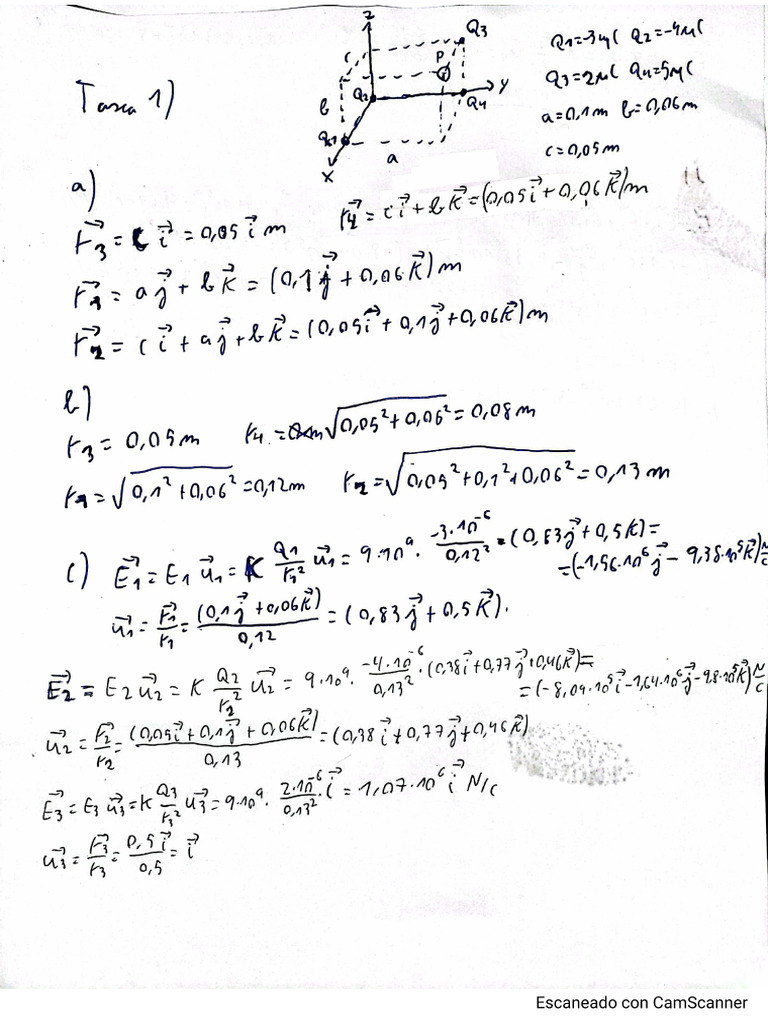 Tarea 1)
z
Q3
P
c
Q2
y
Q4
b
Q1
a
x
Q1=-3μC Q2=-4μC
Q3=2μC Q4=5μC
a=0,1m b=0,06m
c=0,05m
a)
r⃗3 = c i⃗ = 0,05 i⃗ m r⃗4 = c i⃗ + b k⃗ = (0,05 i⃗ + 0,06 k⃗) m
r⃗1 = a j⃗ + b k⃗ = (0,1 j⃗ + 0,06 k⃗) m
r⃗2 = c i⃗ + a j⃗ + b k⃗ = (0,05 i⃗ + 0,1 j⃗ + 0,06 k⃗) m
b)
r3 = 0,05 m r4 = √(0,05² + 0,06²) = 0,08 m
r1 = √(0,1² + 0,06²) = 0,12 m r2 = √(0,05² + 0,1² + 0,06²) = 0,13 m
c) E⃗1 = E1 u⃗1 = K Q1/r1² u⃗1 = 9·10⁹ · -3·10⁻⁶/0,12² · (0,83 j⃗ + 0,5 k⃗) =
= (-1,56·10⁶ j⃗ - 9,38·10⁵ k⃗) N/C
u⃗1 = r⃗1/r1 = (0,1 j⃗ + 0,06 k⃗)/0,12 = (0,83 j⃗ + 0,5 k⃗).
E⃗2 = E2 u⃗2 = K Q2/r2² u⃗2 = 9·10⁹ · -4·10⁻⁶/0,13² · (0,38 i⃗ + 0,77 j⃗ + 0,46 k⃗) =
= (-8,09·10⁵ i⃗ - 1,64·10⁶ j⃗ - 9,8·10⁵ k⃗) N/C
u⃗2 = r⃗2/r2 = (0,05 i⃗ + 0,1 j⃗ + 0,06 k⃗)/0,13 = (0,38 i⃗ + 0,77 j⃗ + 0,46 k⃗)
E⃗3 = E3 u⃗3 = K Q3/r3² u⃗3 = 9·10⁹ · 2·10⁻⁶/0,13² · i⃗ = 1,07·10⁶ i⃗ N/C
u⃗3 = r⃗3/r3 = 0,5 i⃗/0,5 = i⃗
Escaneado con CamScanner